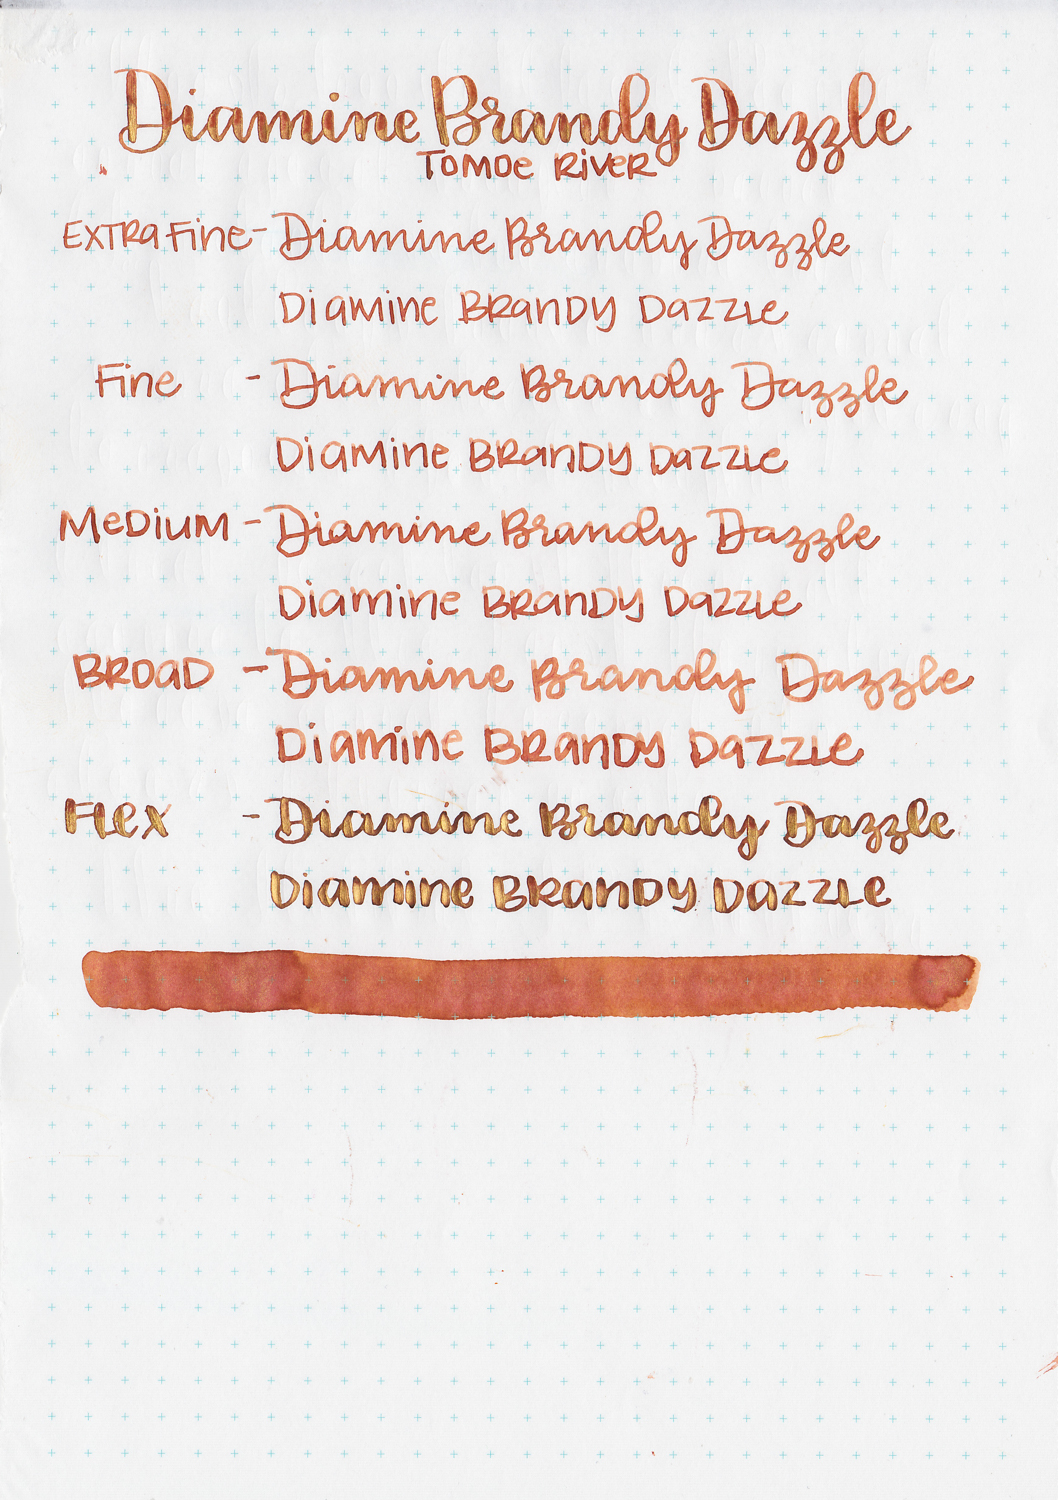 Diamine Brandy Dazzle
Tomoe River
Extra Fine - Diamine Brandy Dazzle
Diamine Brandy Dazzle
Fine - Diamine Brandy Dazzle
Diamine Brandy Dazzle
Medium - Diamine Brandy Dazzle
Diamine Brandy Dazzle
Broad - Diamine Brandy Dazzle
Diamine Brandy Dazzle
Flex - Diamine Brandy Dazzle
Diamine Brandy Dazzle